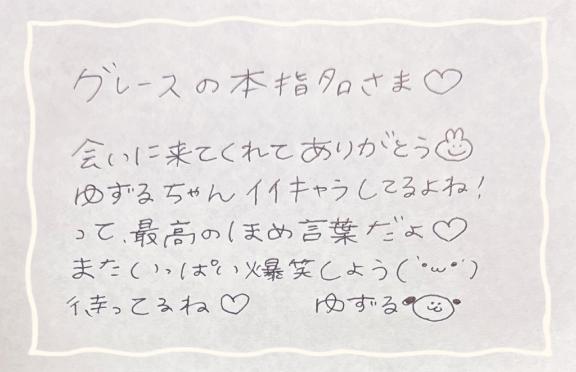 グレースの本指名さま♡
会いに来てくれてありがとう
ゆずるちゃんイイキャラしてるよね!
って、最高のほめ言葉だよ♡
またいっぱい爆笑しよう(˙ω˙)
待ってるね♡ ゆずる